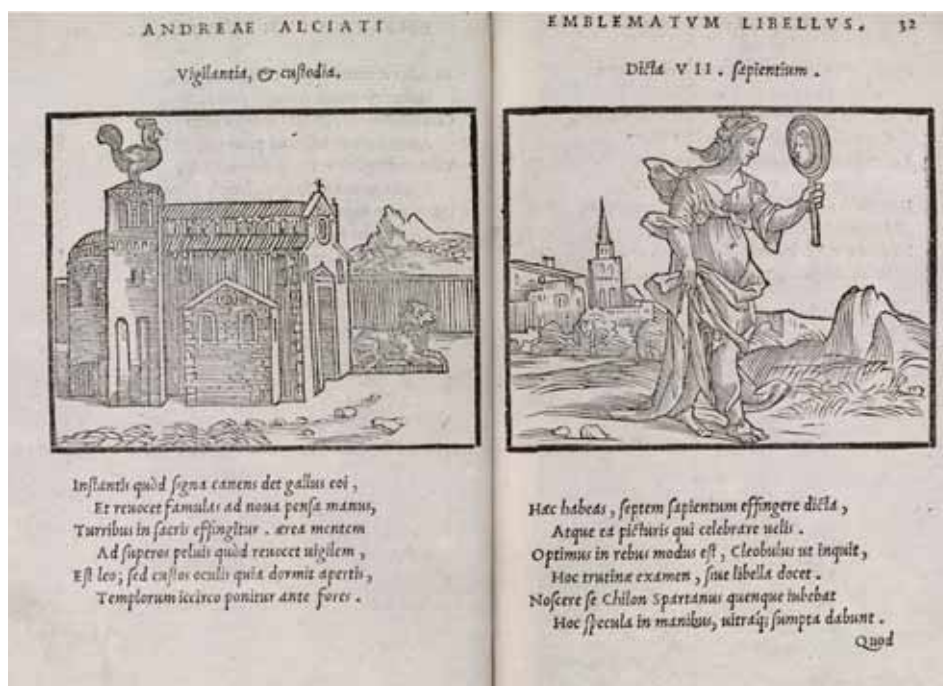 ANDREAE ALCIATI
Vigilantia, & cuſtodia.
Inſtantis quòd ſigna canens det gallus eoi,
Et reuocet famulas ad noua penſa manus,
Turribus in ſacris effingitur. ærea mentem
Ad ſuperos peluis quòd reuocet uigilem,
Eſt leo; ſed cuſtos oculis quia dormit apertis,
Templorum iccirco ponitur ante fores.
EMBLEMATVM LIBELLVS. 32
Dicta VII. ſapientium.
Hæc habeas, ſeptem ſapientum effingere dicta,
Atque ea picturis qui celebrare uelis.
Optimus in rebus modus eſt, Cleobulus ut inquit,
Hoc trutinæ examen, ſiue libella docet.
Noſcere ſe Chilon Spartanus quenque iubebat
Hoc ſpecula in manibus, uitraq́; ſumpta dabunt.
Quod